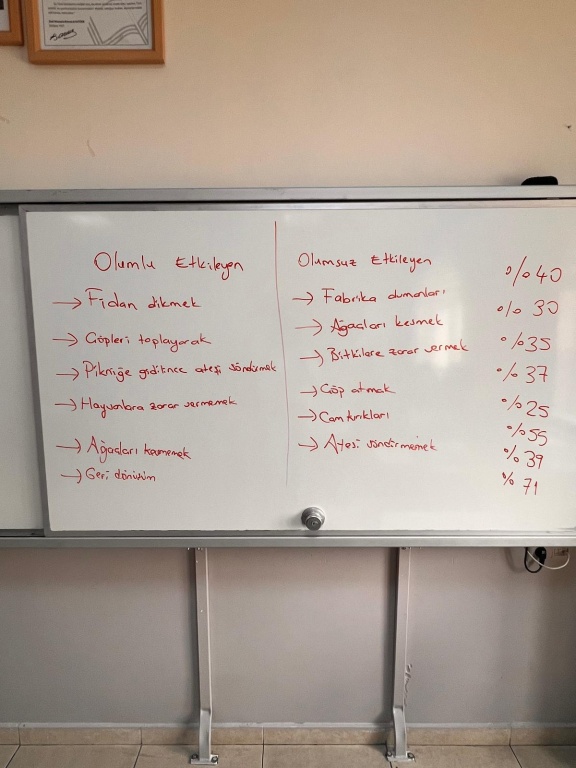 Olumlu Etkileyen
→ Fidan dikmek
→ Çöpleri toplayarak
→ Pikniğe gidince ateşi söndürmek
→ Hayvanlara zarar vermemek
→ Ağaçları kesmemek
→ Geri dönüşüm
Olumsuz Etkileyen
→ Fabrika dumanları
→ Ağaçları kesmek
→ Bitkilere zarar vermek
→ Çöp atmak
→ Cam kırıkları
→ Ateşi söndürmemek
%40
%30
%35
%37
%25
%55
%39
%71